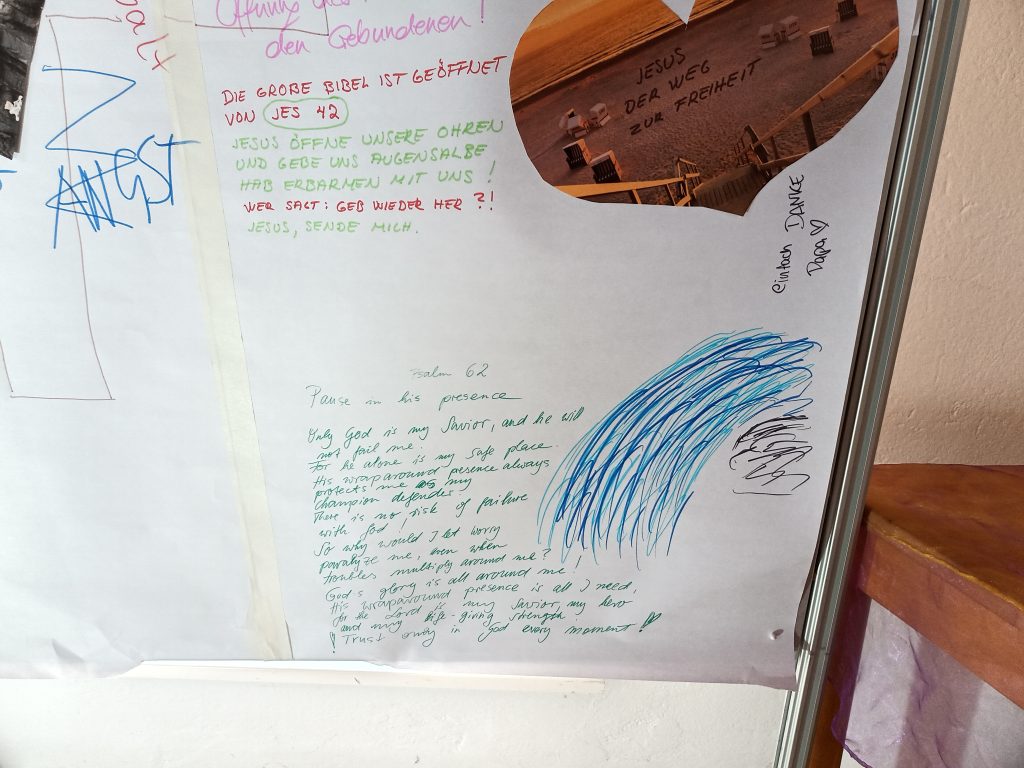 den Gebundenen!
DIE GROßE BIBEL IST GEÖFFNET
VON JES 42
JESUS ÖFFNE UNSERE OHREN
UND GEBE UNS AUGENSALBE
HAB ERBARMEN MIT UNS!
WER SAGT: GEB WIEDER HER?!
JESUS, SENDE MICH.
ANGST
JESUS
DER WEG
ZUR FREIHEIT
Einfach DANKE
Papa ♡
Psalm 62
Pause in his presence
Only God is my Savior, and he will
not fail me.
For he alone is my safe place.
His wraparound presence always
protects me as my
champion defender.
There is no risk of failure
with God!
So why would I let worry
paralyze me, even when
troubles multiply around me?
God's glory is all around me!
His wraparound presence is all I need,
for the Lord is my Savior, my hero
and my life-giving strength.
! Trust only in God every moment!